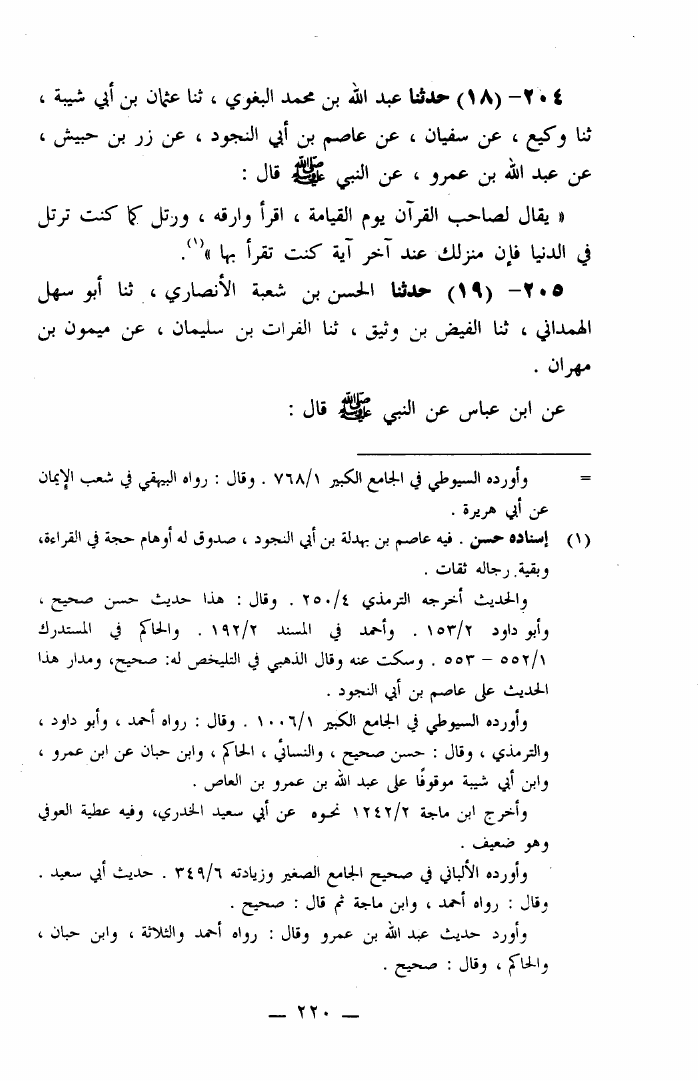 ٢٠٤- (١٨) حدثنا عبد الله بن محمد البغوي ، ثنا عثمان بن أبي شيبة ،
ثنا وكيع ، عن سفيان ، عن عاصم بن أبي النجود ، عن زر بن حبيش ،
عن عبد الله بن عمرو ، عن النبي ﷺ قال :
« يقال لصاحب القرآن يوم القيامة ، اقرأ وارقه ، ورتل كما كنت ترتل
في الدنيا فإن منزلك عند آخر آية كنت تقرأ بها »(١).
٢٠٥- (١٩) حدثنا الحسن بن شعبة الأنصاري ، ثنا أبو سهل
الهمداني ، ثنا الفيض بن وثيق ، ثنا الفرات بن سليمان ، عن ميمون بن
مهران .
عن ابن عباس عن النبي ﷺ قال :
= وأورده السيوطي في الجامع الكبير ٧٦٨/١ . وقال : رواه البيهقي في شعب الإيمان
عن أبي هريرة .
(١) إسناده حسن . فيه عاصم بن بهدلة بن أبي النجود ، صدوق له أوهام حجة في القراءة،
وبقية رجاله ثقات .
والحديث أخرجه الترمذي ٢٥٠/٤ . وقال : هذا حديث حسن صحيح ،
وأبو داود ١٥٣/٢ . وأحمد في المسند ١٩٢/٢ . والحاكم في المستدرك
٥٥٢/١ - ٥٥٣ . وسكت عنه وقال الذهبي في التليخص له: صحيح، ومدار هذا
الحديث على عاصم بن أبي النجود .
وأورده السيوطي في الجامع الكبير ١٠٠٦/١ . وقال : رواه أحمد ، وأبو داود ،
والترمذي ، وقال : حسن صحيح ، والنسائي ، الحاكم ، وابن حبان عن ابن عمرو ،
وابن أبي شيبة موقوفًا على عبد الله بن عمرو بن العاص .
وأخرج ابن ماجة ١٢٤٢/٢ نحوه عن أبي سعيد الخدري، وفيه عطية العوفي
وهو ضعيف .
وأورده الألباني في صحيح الجامع الصغير وزيادته ٣٤٩/٦ . حديث أبي سعيد .
وقال : رواه أحمد ، وابن ماجة ثم قال : صحيح .
وأورد حديث عبد الله بن عمرو وقال : رواه أحمد والثلاثة ، وابن حبان ،
والحاكم ، وقال : صحيح .
— ٢٢٠ —